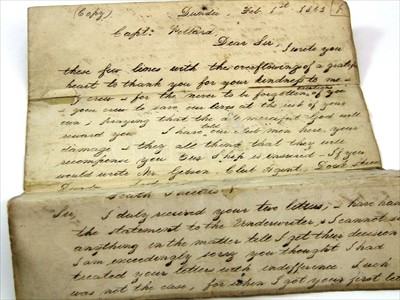 (Copy) Dundee, Feb. 1st 1863
Captn.
Dear Sir, I write you
these few lines with the overflowing of a grateful
heart to thank you for your kindness to me
crew & for the never to be forgotten
your crew to save our lives at the risk of your
own & praying that the all merciful God will
reward you I have told our Club men here, your
damage & they all think that they will
recompense you this Ship is insured - If you
would write Mr. Gibson Club Agent, Dock Street
Dundee
Sir, I duly recieved your two letters, I have
the statement to the Underwriter, & I cannot
anything in the matter till I get their decision
I am exceedingly sorry you thought I had
treated your letters with indifference Such
was not the case, for when I got your first